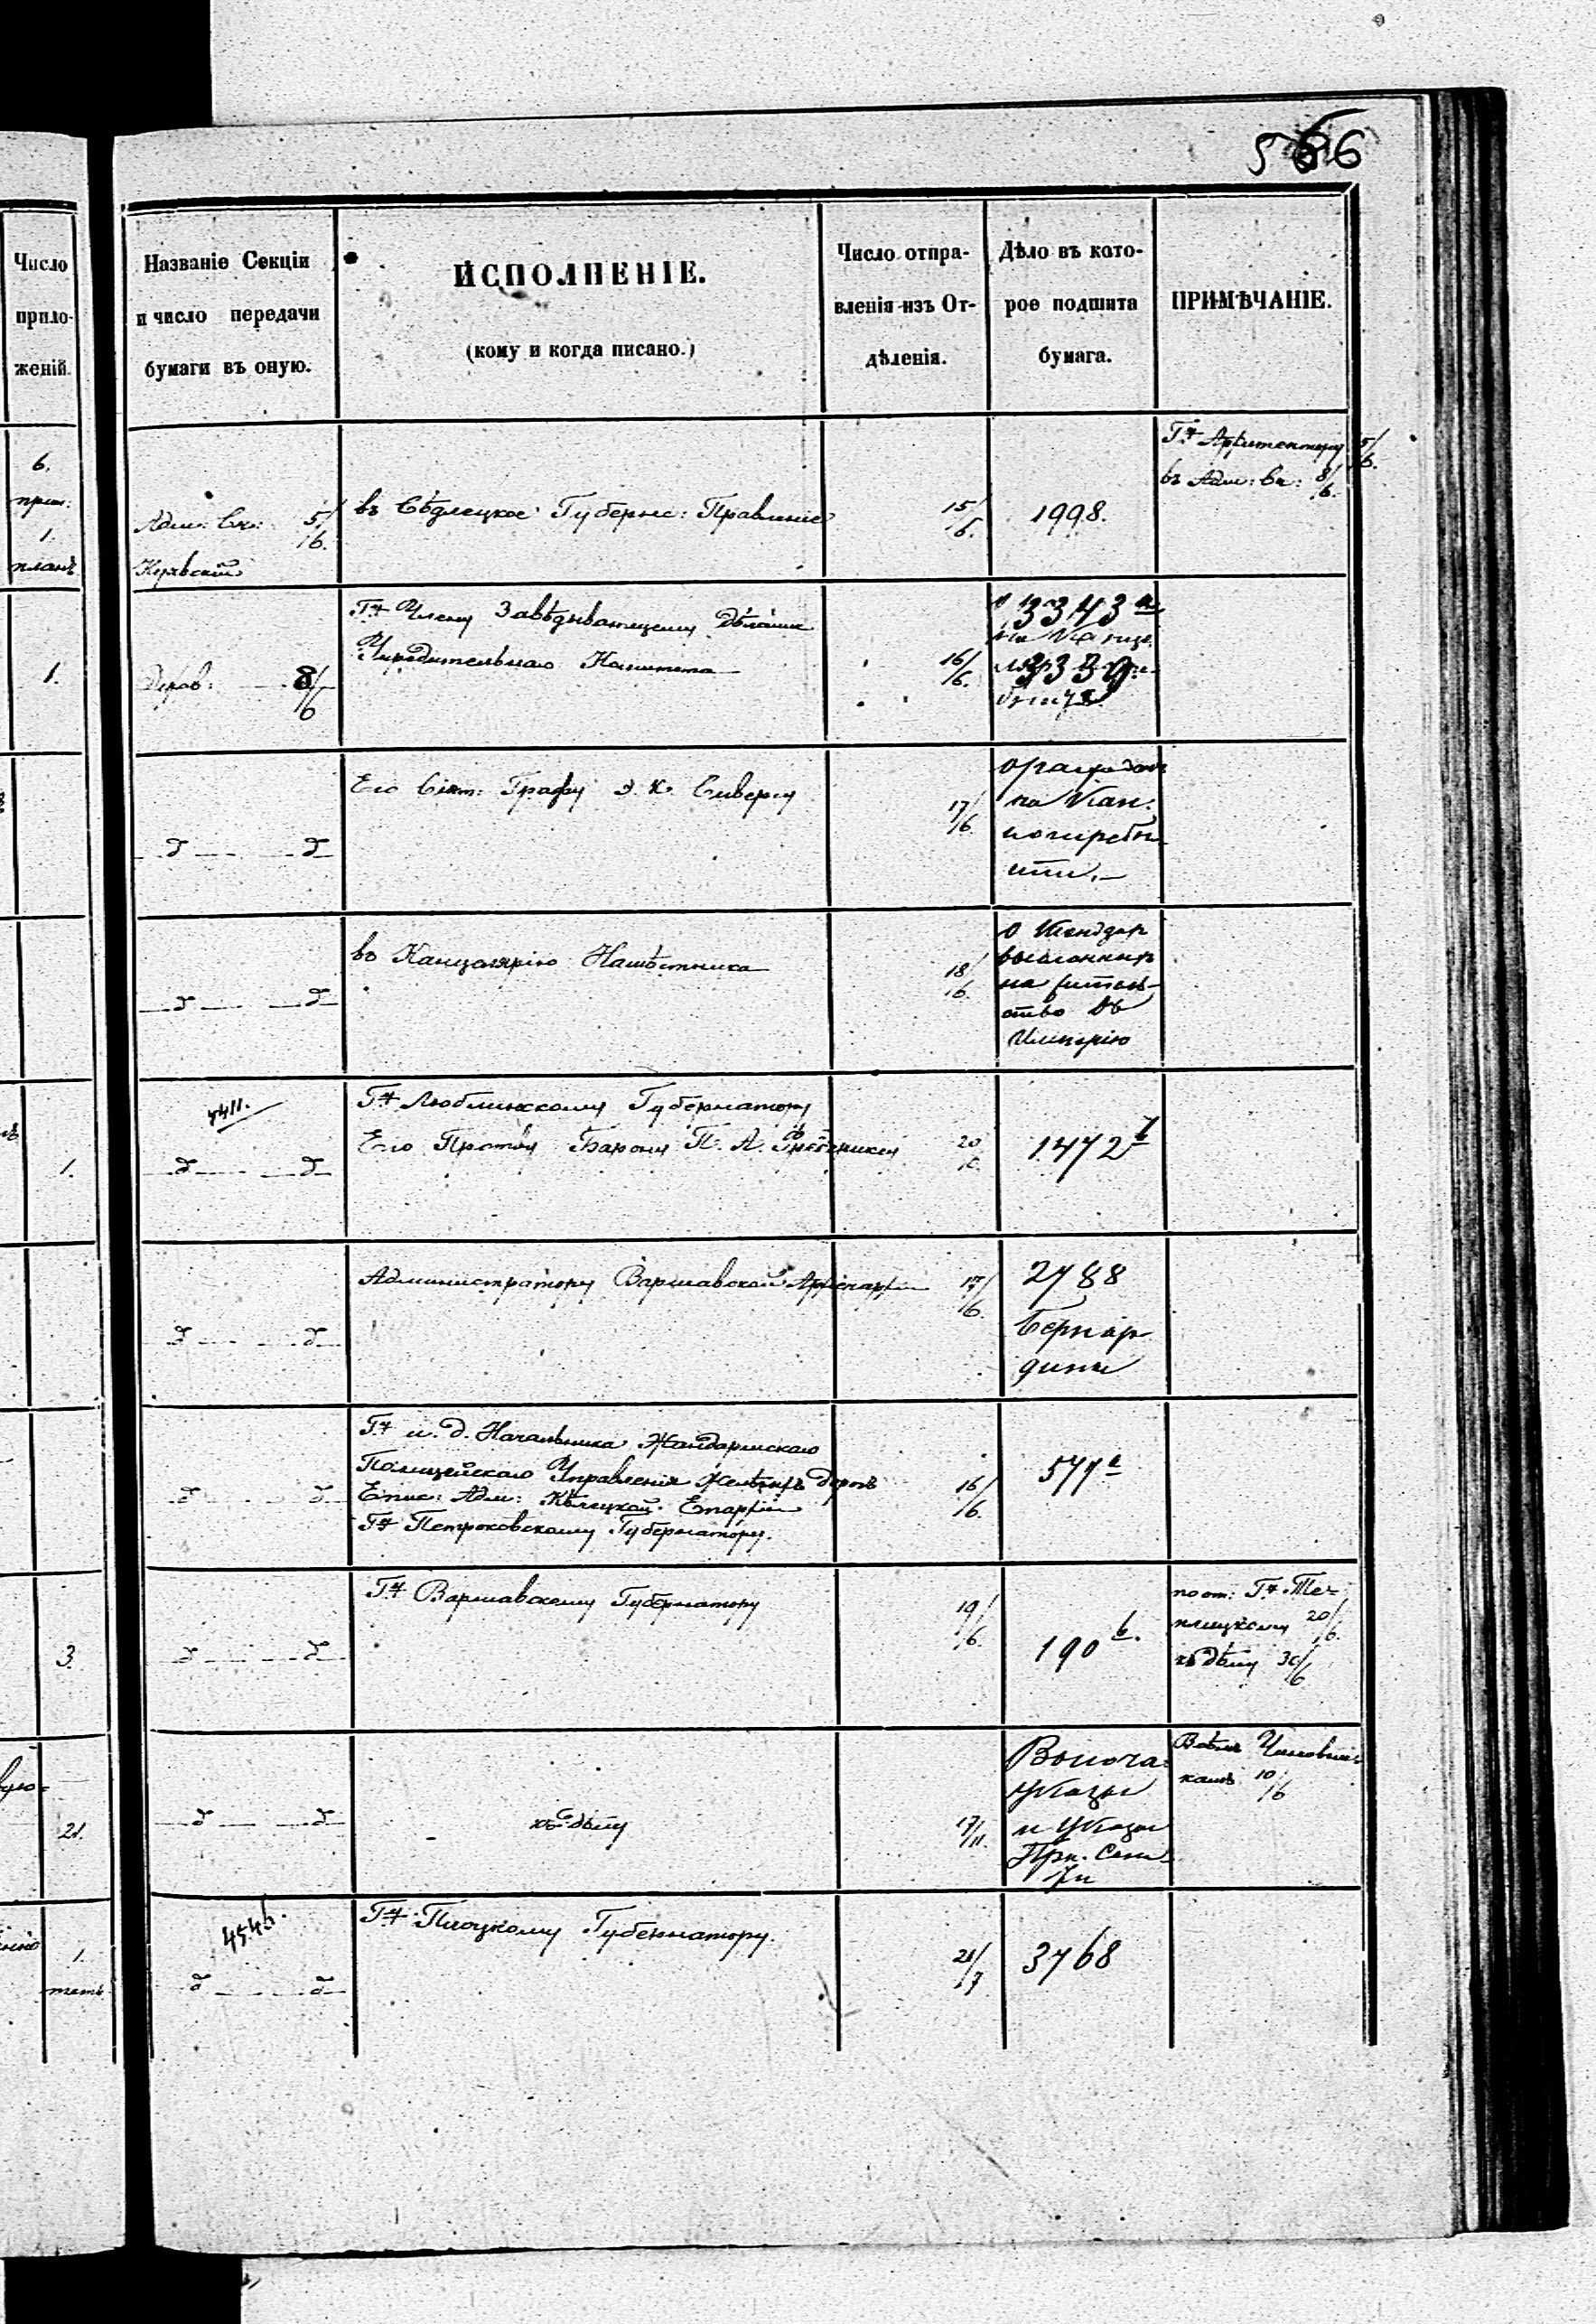 566
Число
прило-
женій.
Названіе Секціи
и число передачи
бумаги въ оную.
ИСПОЛНЕНІЕ.
(кому и когда писано.)
Число отпра-
вленія изъ От-
дѣленія.
Дѣло въ кото-
рое подшита
бумага.
ПРИМѢЧАНІЕ.
6.
1.
планъ
Адм: Ск: 5/6.
въ Сѣдлецкое Губернс: Правленіе
15/6.
1998.
Гну Архитектору 5/6.
въ Адм: Ск: 8/6.
1.
Духов: 8/6
Гну Члену Завѣдывающему Дѣлами
Учредительнаго Комитета
16/6.
3343 а
3339
д д
Его Сіят: Графу Э. К. Сиверсу
17/6
на Кан.
потребн
д д
въ Канцелярію Намѣстника
18/6.
о
высланных
на житель-
ство въ
Имперію
1.
4411.
д д
Гну Люблинскому Губернатору
Его Прству Барону П. А.
20/6.
1472
д д
Администратору Варшавской Архіепархіи
17/6.
2788
Бернар
дины
д д
Гну и. д. Начальника Жандармскаго
Полицейскаго Управленія Желѣзныхъ дорогъ
Епис: Адм: Кѣлецкой Епархіи
Гну Петроковскому Губернатору.
16/6.
571 а
3.
д д
Гну Варшавскому Губернатору
19/6.
190 б.
20/6.
къ дѣлу 30/6
21.
д д
къ дѣлу
17/11.
Высоча:
Указы
и Указы
Пр. Сена
Всѣмъ Чиновни-
камъ 10/6
1.
4546.
д д
Гну Плоцкому Губернатору.
21/7
3768